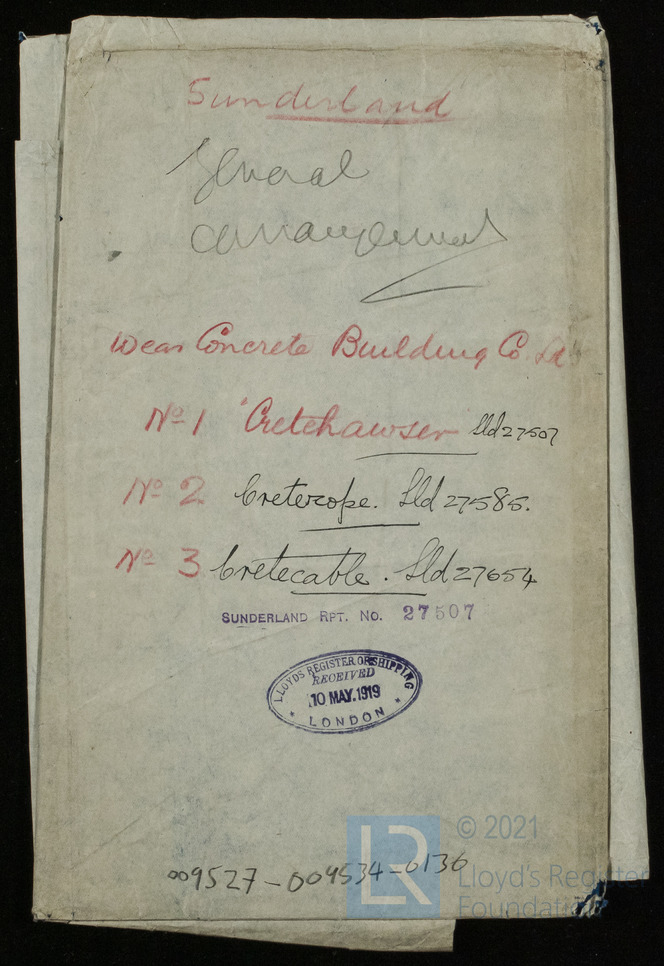 Sunderland
General
arrangement
Wear Concrete Building Co. Ld
No 1 "Cretehawser Sld 27507
No 2 Creterope. Sld 27585.
No 3 Cretecable. Sld 27654
SUNDERLAND RPT. No. 27507
LLOYDS REGISTER OF SHIPPING
RECEIVED
10 MAY.1919
* LONDON *
009527-009534-0136
LR
© 2021
Lloyd's Register
Foundation